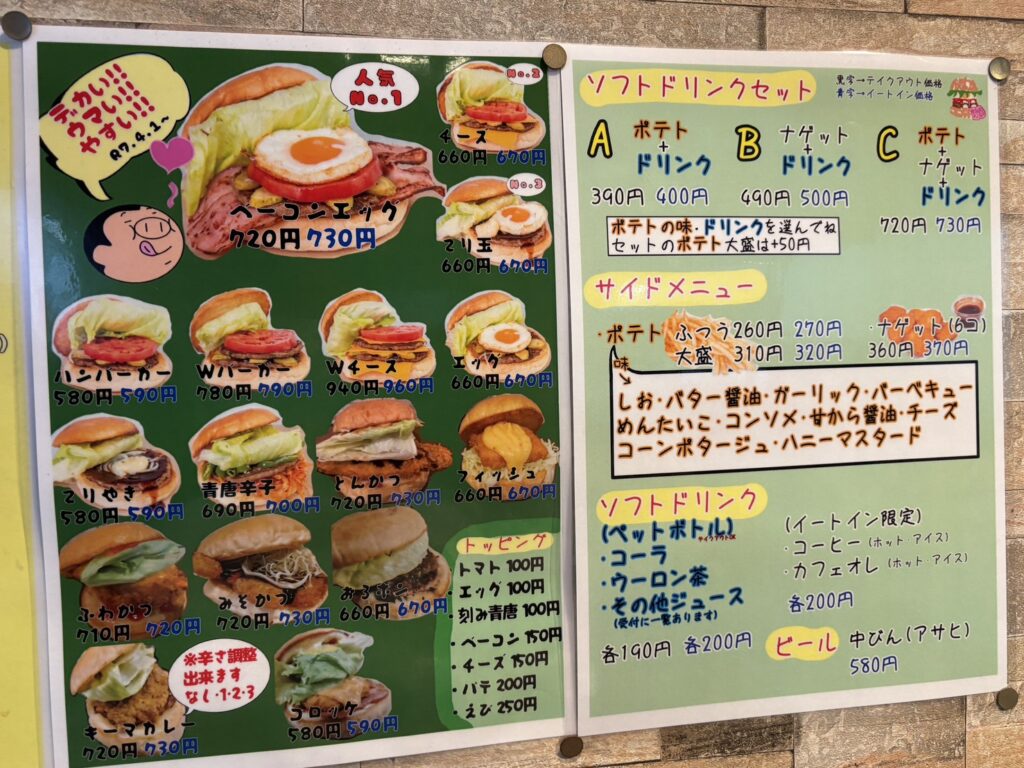 デカい!!
ウマい!!
やすい!!
R7.4.1~
人気
No.1
ベーコンエッグ
720円 730円
No.2
チーズ
660円 670円
No.3
てり玉
660円 670円
ハンバーガー
580円 590円
Wバーガー
780円 790円
Wチーズ
940円 960円
エッグ
660円 670円
てりやき
580円 590円
青唐辛子
690円 700円
とんかつ
720円 730円
フィッシュ
660円 670円
ふわかつ
710円 720円
みそかつ
720円 730円
660円 670円
キーマカレー
720円 730円
※辛さ調整
出来ます
なし・1・2・3
コロッケ
580円 590円
トッピング
・トマト 100円
・エッグ 100円
・刻み青唐 100円
・ベーコン 150円
・チーズ 150円
・パテ 200円
・えび 250円
ソフトドリンクセット
黒字→テイクアウト価格
青字→イートイン価格
A ポテト
+
ドリンク
390円 400円
B ナゲット
+
ドリンク
490円 500円
C ポテト
+
ナゲット
+
ドリンク
720円 730円
ポテトの味・ドリンクを選んでね
セットのポテト大盛は+50円
サイドメニュー
・ポテト ふつう 260円 270円
大盛 310円 320円
・ナゲット(6コ)
360円 370円
味
しお・バター醤油・ガーリック・バーベキュー
めんたいこ・コンソメ・甘から醤油・チーズ
コーンポタージュ・ハニーマスタード
ソフトドリンク
(ペットボトル)
テイクアウトOK
・コーラ
・ウーロン茶
・その他ジュース
(受付に一覧あります)
各190円 各200円
(イートイン限定)
・コーヒー(ホット・アイス)
・カフェオレ(ホット・アイス)
各200円
ビール 中びん(アサヒ)
580円